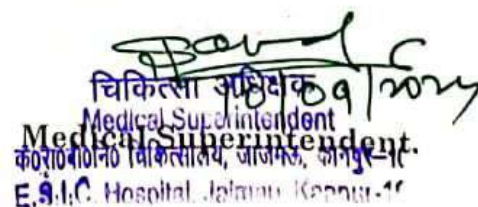 चिकित्सा अधिक्षक
Medical Superintendent
Medical Superintendent.
क०रा०बी०नि० चिकित्सालय, जाजमऊ, कानपुर-1
E.S.I.C. Hospital, Jajmau, Kanpur-1